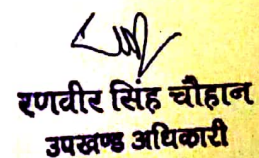 रणवीर सिंह चौहान
उपखण्ड अधिकारी